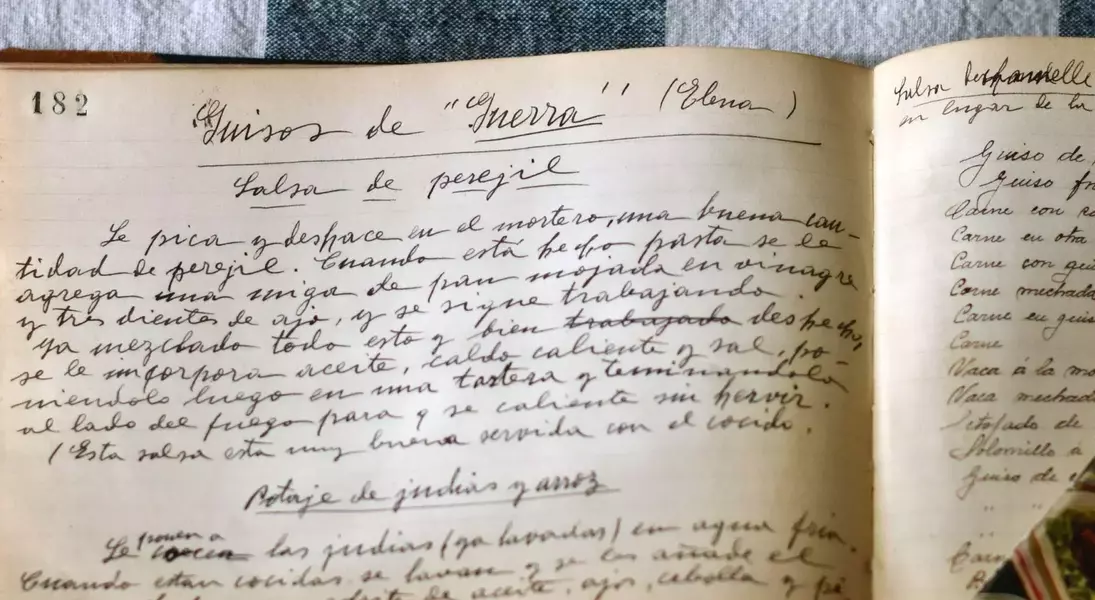 182
Guisos de "Guerra" (Elena)
Salsa de perejil
Se pica y deshace en el mortero, una buena can-
tidad de perejil. Cuando está hecho pasta se le
agrega una miga de pan mojada en vinagre
y tres dientes de ajo, y se sigue trabajando.
Ya mezclado todo esto y bien trabajado deshecho,
se le incorpora aceite, caldo caliente y sal, po-
niendolo luego en una tartera y terminandola
al lado del fuego para q se caliente sin hervir.
(Esta salsa esta muy buena servida con el cocido.
Potaje de judias y arroz
Se ponen a cocer las judias (ya lavadas) en agua fria.
Cuando estan cocidas se lavan y se les añade el
de aceite, ajos, cebolla y pe
Salsa
en lugar de la
Guiso de
Guiso
Carne con
Carne en otra
Carne con
Carne mechada
Carne en guis
Carne
Vaca á la
Vaca mechada
Estofado de
Solomillo a
Guiso de
" "